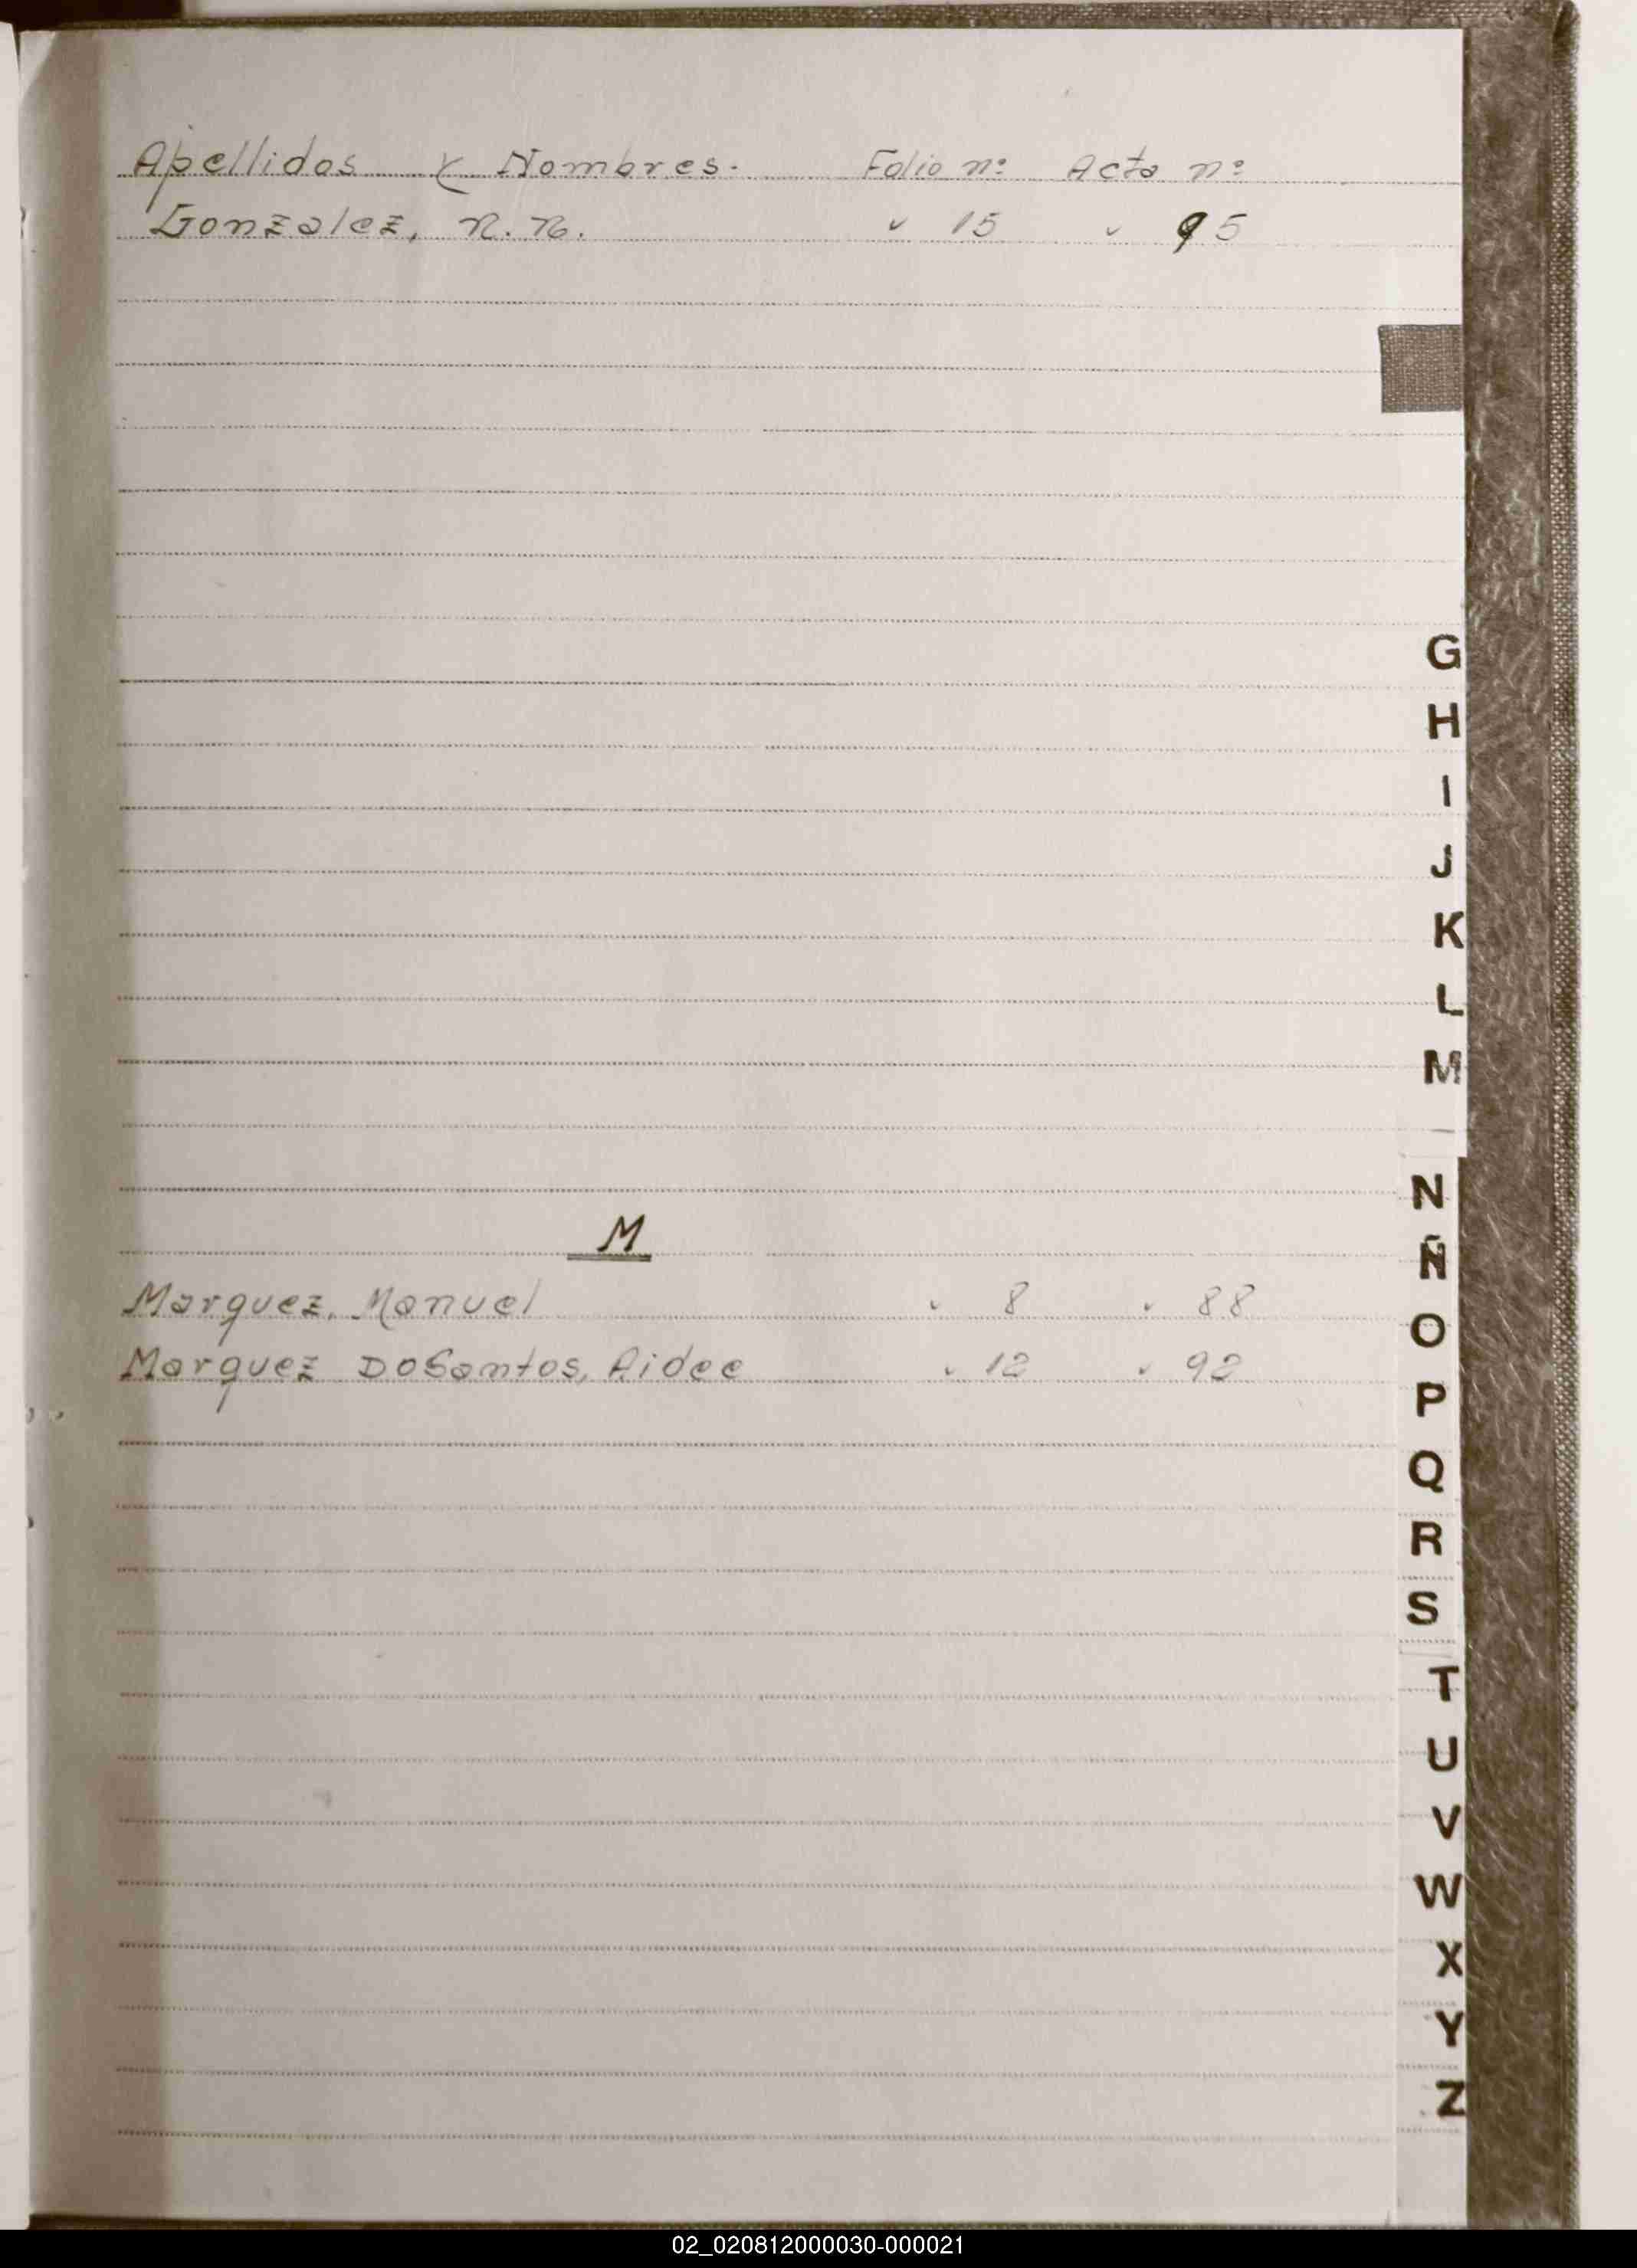 Apellidos y Nombres. Folio nº Acta nº
Gonzalez, N.N. " 15 " 95
G
H
I
J
K
L
M
N
Ñ
M
Marquez, Manuel " 8 " 88
O
Marquez DoSantos, Aidee " 12 " 92
P
Q
R
S
T
U
V
W
X
Y
Z
02_020812000030-000021